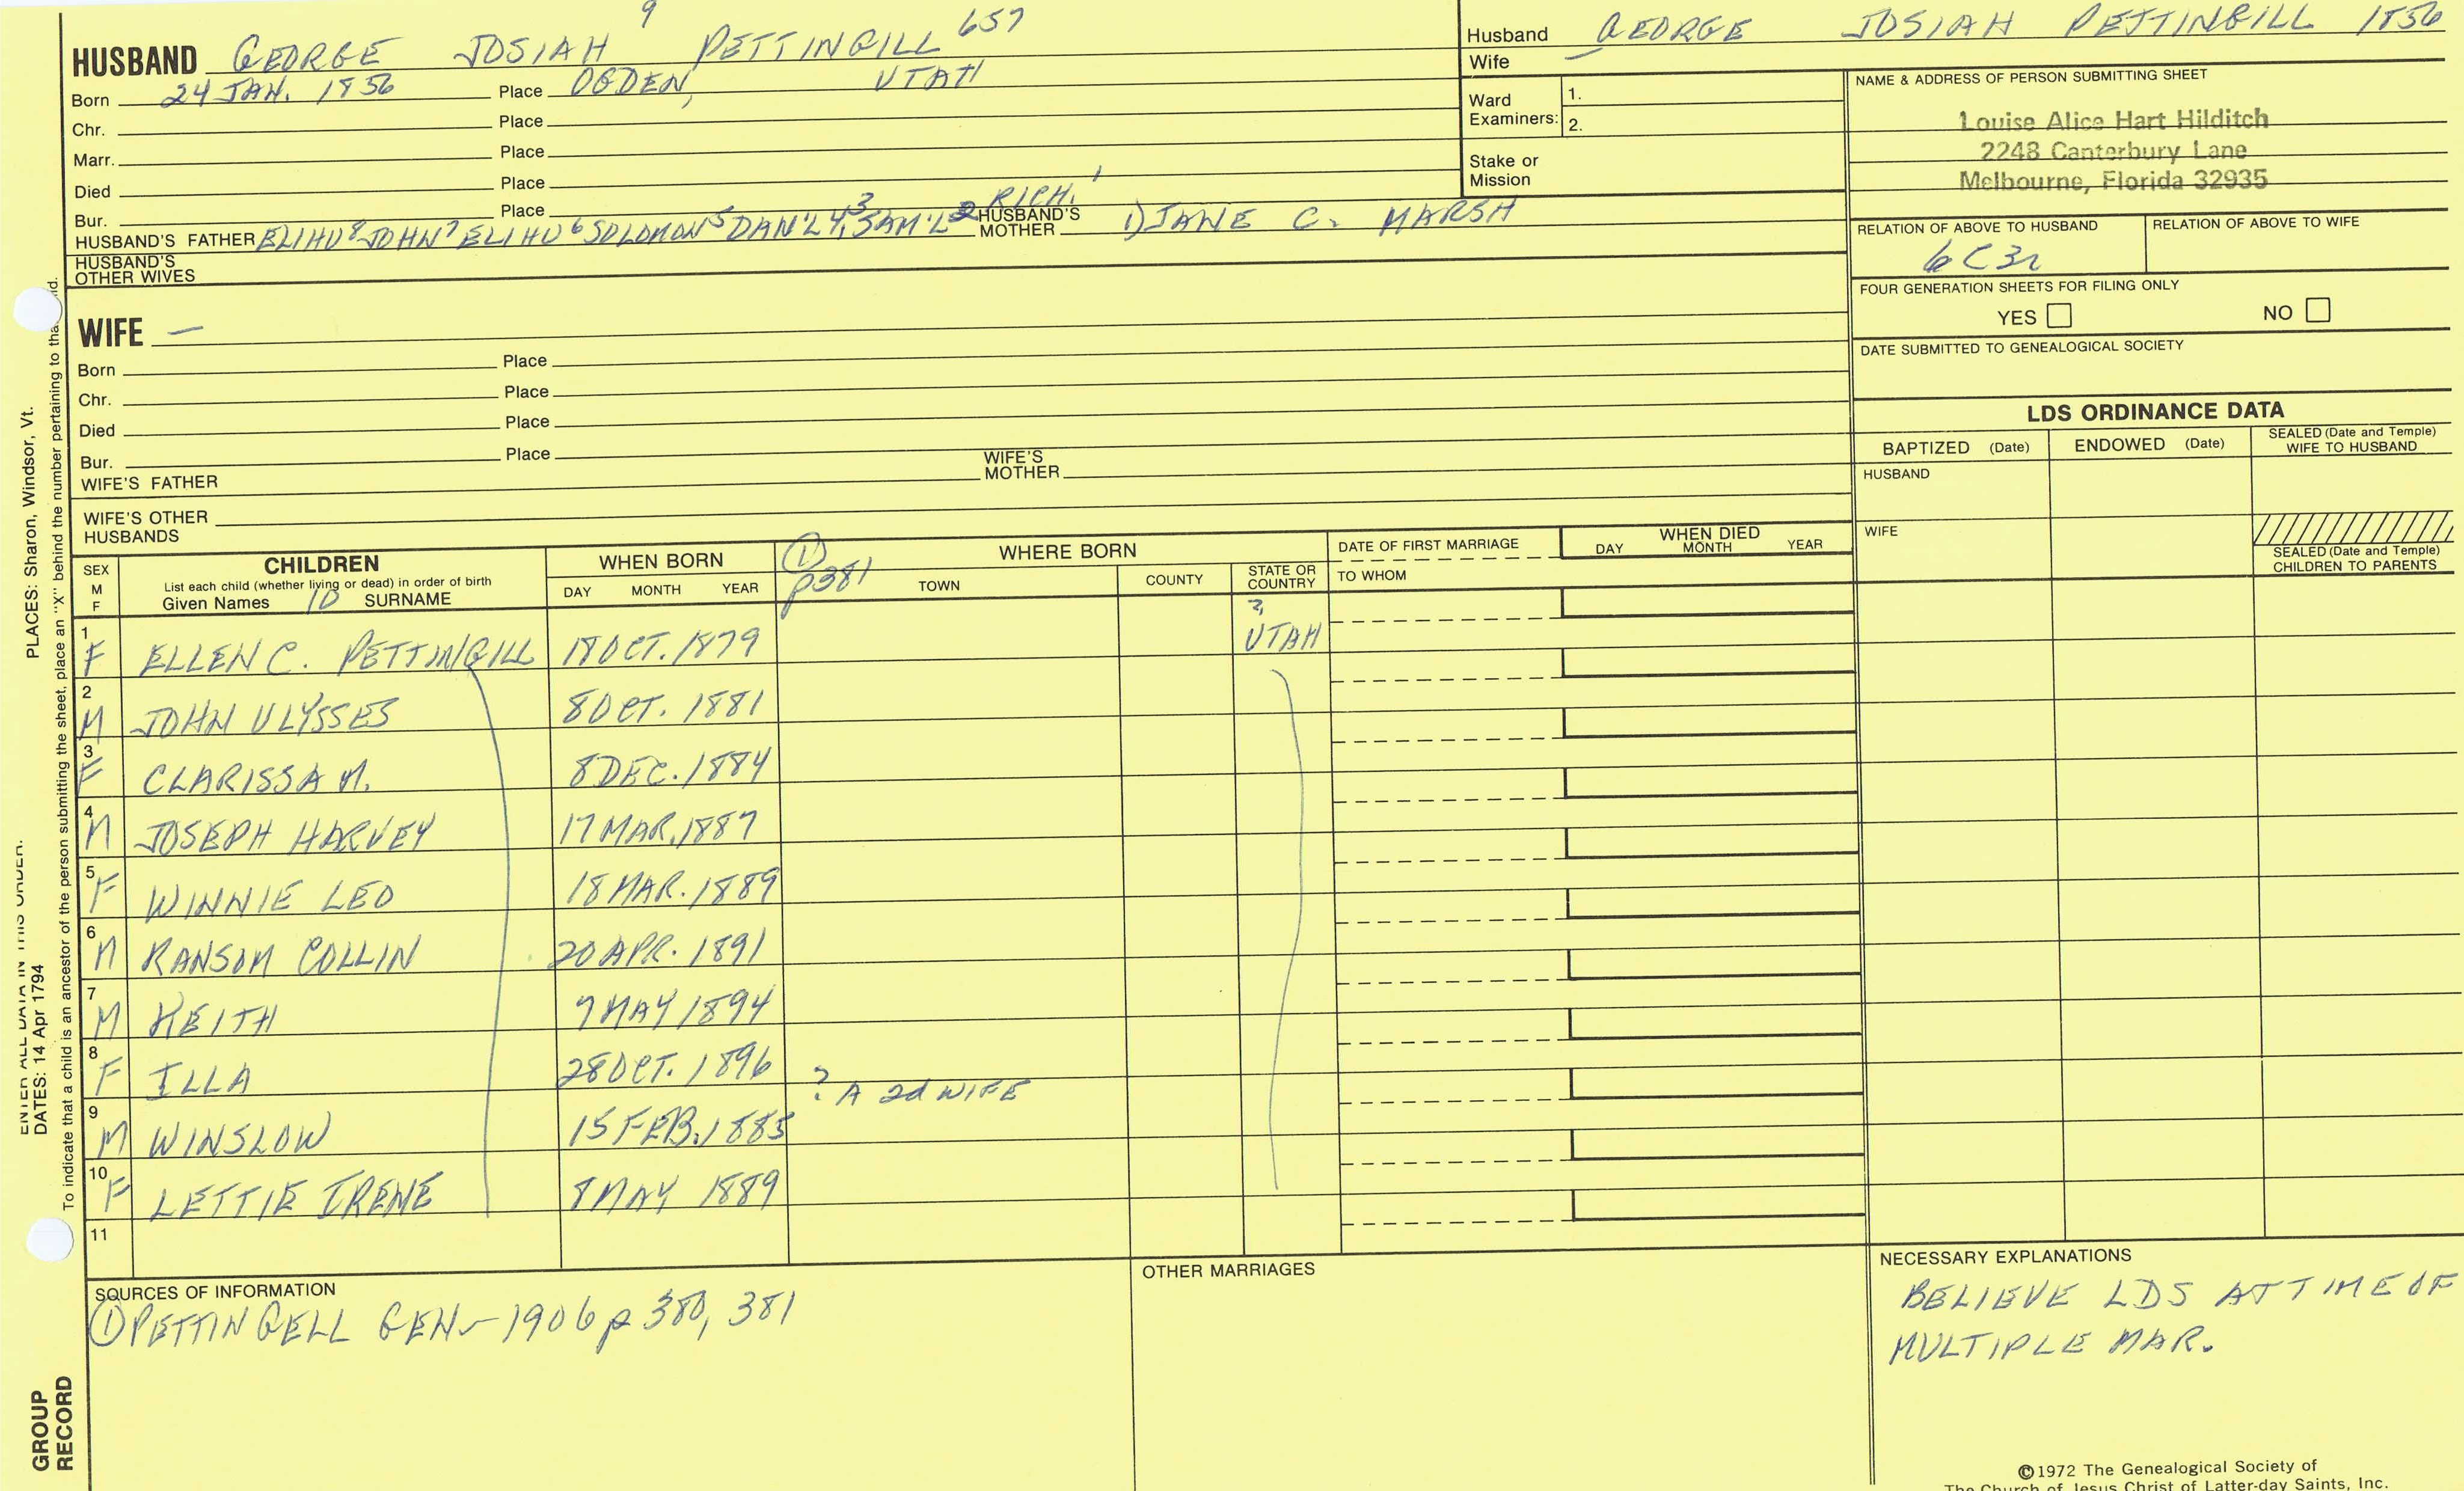 HUSBAND GEORGE JOSIAH 9 PETTINGILL 657
Born 24 JAN. 1856 Place OGDEN, UTAH
Chr. Place
Marr. Place
Died Place
Bur. Place
HUSBAND'S FATHER ELIHU 8 JOHN 7 ELIHU 6 SOLOMON 5 DAN'L 4, SAM'L 3 2 RICH. 1 HUSBAND'S MOTHER 1) JANE C. MARSH
HUSBAND'S OTHER WIVES
Husband GEORGE JOSIAH PETTINGILL 1856
Wife —
Ward Examiners: 1.
2.
Stake or Mission
NAME & ADDRESS OF PERSON SUBMITTING SHEET
Louise Alice Hart Hilditch
2248 Canterbury Lane
Melbourne, Florida 32935
RELATION OF ABOVE TO HUSBAND RELATION OF ABOVE TO WIFE
6C3r
FOUR GENERATION SHEETS FOR FILING ONLY
YES NO
DATE SUBMITTED TO GENEALOGICAL SOCIETY
WIFE —
Born Place
Chr. Place
Died Place
Bur. Place
WIFE'S FATHER WIFE'S MOTHER
WIFE'S OTHER HUSBANDS
LDS ORDINANCE DATA
BAPTIZED (Date) ENDOWED (Date) SEALED (Date and Temple) WIFE TO HUSBAND
HUSBAND
WIFE
SEALED (Date and Temple) CHILDREN TO PARENTS
SEX M F
CHILDREN
List each child (whether living or dead) in order of birth
Given Names 10 SURNAME
WHEN BORN
DAY MONTH YEAR
① p381
WHERE BORN
TOWN COUNTY STATE OR COUNTRY
DATE OF FIRST MARRIAGE
TO WHOM
WHEN DIED
DAY MONTH YEAR
1 F ELLEN C. PETTINGILL 18 OCT. 1879 ? UTAH
2 M JOHN ULYSSES 8 OCT. 1881
3 F CLARISSA M. 8 DEC. 1884
4 M JOSEPH HARVEY 17 MAR. 1887
5 F WINNIE LEO 18 MAR. 1889
6 M RANSOM COLLIN 20 APR. 1891
7 M KEITH 7 MAY 1894
8 F ILLA 28 OCT. 1896
? A 2d WIFE
9 M WINSLOW 15 FEB. 1885
10 F LETTIE IRENE 8 MAY 1889
11
SOURCES OF INFORMATION
① PETTINGELL GEN - 1906 p 380, 381
OTHER MARRIAGES
NECESSARY EXPLANATIONS
BELIEVE LDS AT TIME OF
MULTIPLE MAR.
©1972 The Genealogical Society of
The Church of Jesus Christ of Latter-day Saints, Inc.
ENTER ALL DATA IN THIS ORDER:
DATES: 14 Apr 1794 PLACES: Sharon, Windsor, Vt.
To indicate that a child is an ancestor of the person submitting the sheet, place an "X" behind the number pertaining to tha ld.
GROUP
RECORD